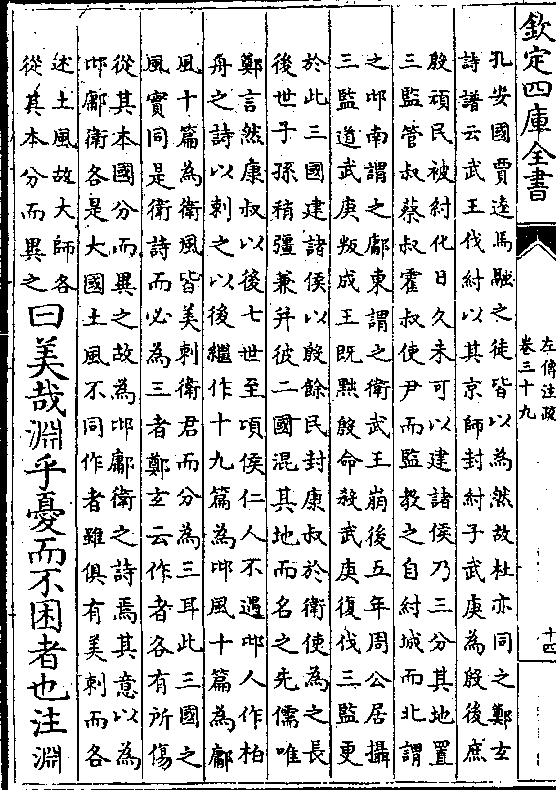 欽定四庫全書
左傳注疏
卷三十九
十四
孔安國賈逵馬融之徒皆以為然故杜亦同之鄭玄
詩譜云武王伐紂以其京師封紂子武庚為殷後庶
殷頑民被紂化日久未可以建諸侯乃三分其地置
三監管叔蔡叔霍叔使尹而監教之自紂城而北謂
之邶南謂之鄘東謂之衛武王崩後五年周公居攝
三監道武庚叛成王既黜殷命殺武庚復伐三監更
於此三國建諸侯以殷餘民封康叔於衛使為之長
後世子孫稍彊兼并彼二國混其地而名之先儒唯
鄭言然康叔以後七世至頃侯仁人不遇邶人作柏
舟之詩以刺之以後繼作十九篇為邶風十篇為鄘
風十篇為衛風皆美刺衛君而分為三耳此三國之
風實同是衛詩而必為三者鄭玄云作者各有所傷
從其本國分而異之故為邶鄘衛之詩焉其意以為
邶鄘衛各是大國土風不同作者雖俱有美刺而各
述土風故大師各
從其本分而異之
曰美哉淵乎憂而不困者也注淵